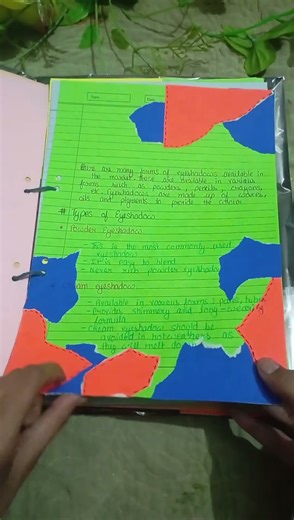 Date
there are many forms of eyeshadows available in
the market these are available in various
forms such as powders, pencils, crayons,
etc. eyeshadows are made up of waxes,
oils and pigments to provide the colours.
# Types of Eyeshadow
• Powder Eyeshadow
- This is the most commonly used
eyeshadow
- It is easy to blend
- Never rub powder eyeshadow
eam eyeshadow
- Available in various forms : pans, tubes
- Provides shimmery and long-wearing
formula
- Cream eyeshadow should be
avoided in hot weathers as
they will melt do